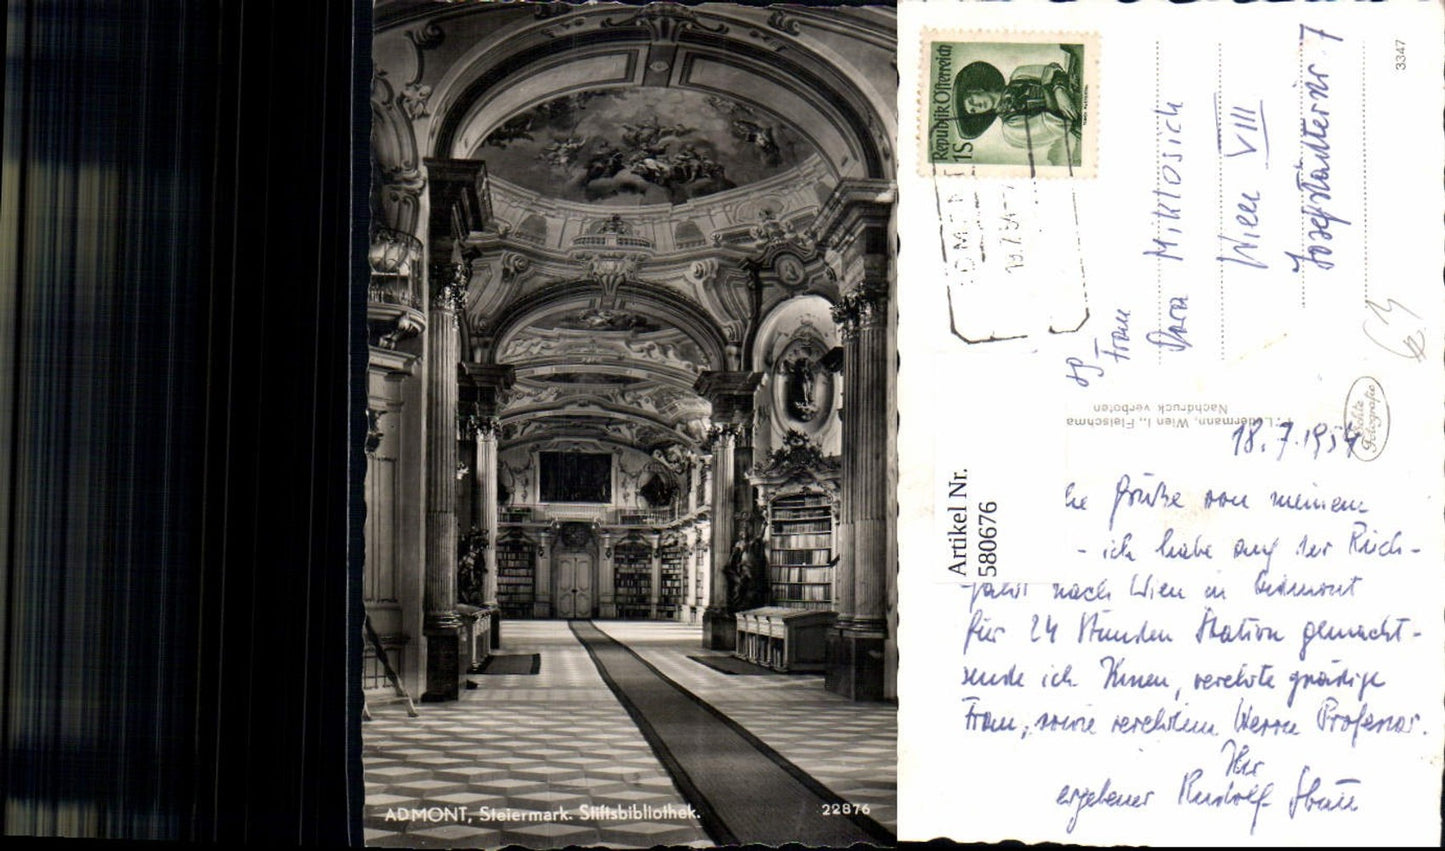 ADMONT, Steiermark. Stiftsbibliothek.
22876
Republik Österreich
1S
18.7.54
3347
Frau
Dora Miklosich
Wien VIII
Josefstädterstr. 7
Echte Fotografie
Wien I., Fleischma
Nachdruck verboten
18.7.1954
Artikel Nr.
580676
he Grüße von meinem
- ich habe auf der Rück-
fahrt nach Wien in Admont
für 24 Stunden Station gemacht -
sende ich Ihnen, verehrte gnädige
Frau, sowie verehrtem Herrn Professor.
Ihr
ergebener Rudolf